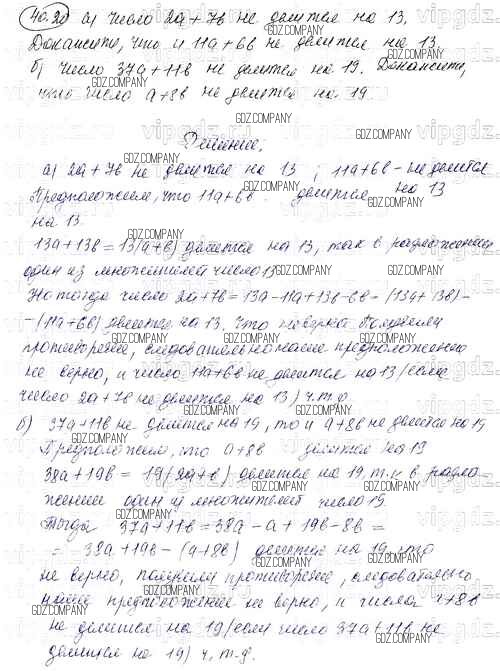 40.20 а) число 2a+7b не делится на 13,
Докажите, что и 11a+6b не делится на 13
б) число 37a+11b не делится на 19. Докажите,
что число a+8b не делится на 19
Решение.
а) 2a+7b не делится на 13 ; 11a+6b - не делится
Предположим, что 11a+6b делится на 13
на 13.
13a+13b = 13(a+b) делится на 13, так в разложении
один из множителей число 13
Но тогда число 2a+7b = 13a-11a+13b-6b = (13a+13b)-
-(11a+6b) делится на 13, что неверно. Получили
противоречие, следовательно наше предположение
не верно, и число 11a+6b не делится на 13 (если
число 2a+7b не делится на 13) ч.т.д.
б) 37a+11b не делится на 19, то и a+8b не делится на 19
Предположим, что a+8b делится на 13
38a+19b = 19(2a+b) делится на 19, т.к в разло-
жении один из множителей число 19
Тогда 37a+11b = 38a-a+19b-8b =
= 38a+19b-(a+8b) делится на 19, что
не верно, получили противоречие, следовательно
наше предположение не верно, и число a+8b
не делится на 19 (если число 37a+11b не
делится на 19) ч.т.д.
GDZ.COMPANY
vipgdz.com